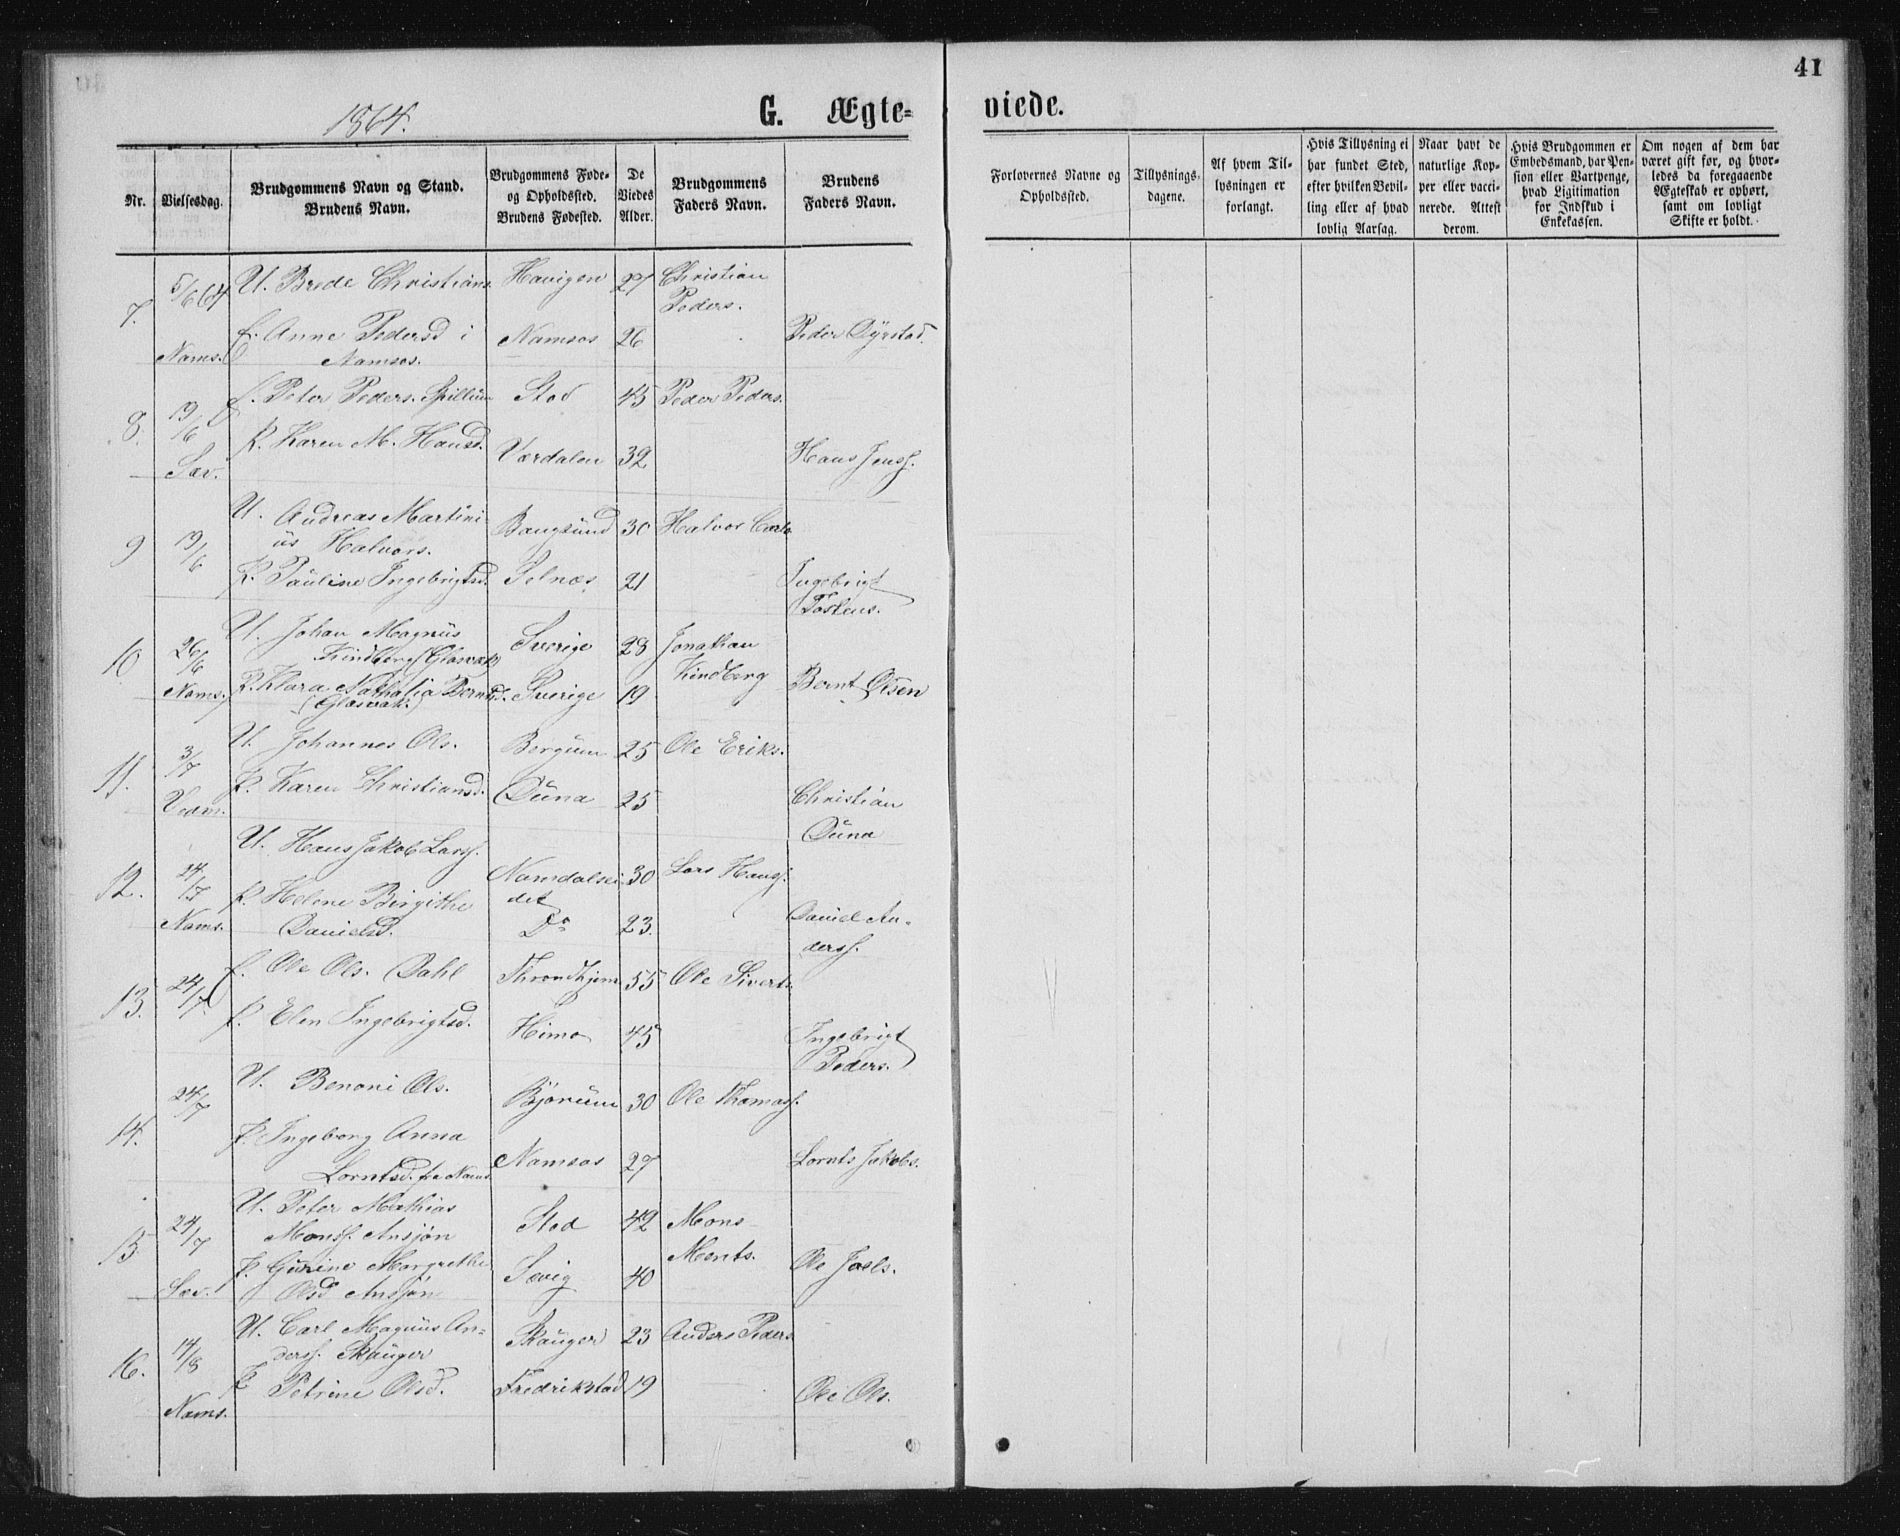 41
1864.
G. Ægte-
viede.
Nr.
Vielsesdag.
Brudgommens Navn og Stand.
Brudens Navn.
Brudgommens Føde-
og Opholdssted.
Brudens Fødested.
De
Viedes
Alder.
Brudgommens
Faders Navn.
Brudens
Faders Navn.
Forlovernes Navne og
Opholdssted.
Tillysnings-
dagene.
Af hvem Til-
lysningen er
forlangt.
Hvis Tillysning ei
har fundet Sted,
efter hvilken Bevil-
ling eller af hvad
lovlig Aarsag.
Naar havt de
naturlige Kop-
per eller vacci-
nerede. Attest
derom.
Hvis Brudgommen er
Embedsmand, har Pen-
sion eller Vartpenge,
hvad Ligitimation
for Indskud i
Enkekassen.
Om nogen af dem har
været gift før, og hvor-
ledes da foregaaende
Ægteskab er ophørt,
samt om lovligt
Skifte er holdt.
7. 5/6 64 U. Brede Christians. Havigen 27 Christian
Peders.
f. Anne Pedersd i Namsos 26 Peder Dyrstad.
Nams. Namsos.
8. 19/6 f. Peter Peders. Spillum Stod 45 Peder Peders.
P. Karen M. Hansd. Værdalen 32 Hans Jenss.
Sæv.
9 19/6 U. Andreas Martini-
us Halvors. Bangsund 30 Halvor Carls
P. Pauline Ingebrigtsd. Selnæs 21 Ingebrigt
Tostens.
10 26/6 U. Johan Magnus Sverige 28 Jonathan
Kindberg (Glasværk) Kindberg
Nams. P. Klara Nathalia Berntsd. Sverige 19 Bernt Olsen
(Glasværk.)
11. 3/7 U. Johannes Ols. Bergum 25 Ole Eriks.
P. Karen Christiansd. Duna 25 Christian
Duna
Vem.
12. 24/7 U. Hans Jakob Larss. Namdalsei-
det 30 Lars Hanss.
P. Helene Birgithe
Danielsd. Do 23. Daniel An-
derss.
Nams.
13. 24/7. f. Ole Ols. Dahl Throndhjem 55 Ole Siverts.
P. Elen Ingebrigtsd. Himo 45 Ingebrigt
Peders.
14. 24/7 U. Benoni Ols. Bjørum 30 Ole Thomass.
P. Ingeborg Anna
Lorntsd. fra Nams. Namsos 27 Lornts Jakobs.
15 24/7 U. Peter Mathias
Monss. Ansjøn Stod 42 Mons
Monts.
P. Gurine Margrethe
Olsd Ansjøn Sævig 40 Ole Joels.
Sæv.
16. 14/8 U. Carl Magnus An-
derss. Skauger Skauger 23 Anders Peders
P. Petrine Olsd. Fredrikstad 19 Ole Ols.
Nams.